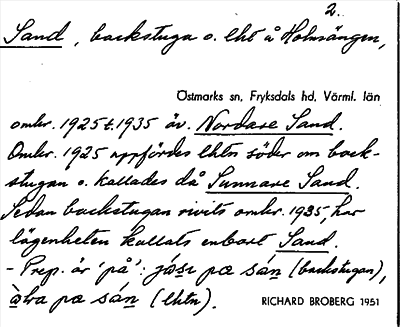 2.
Sand, backstuga o. lht å Holmängen,
Östmarks sn, Fryksdals hd, Värml. län
omkr. 1925 t. 1935 äv. Nordare Sand.
Omkr. 1925 uppfördes lhtn söder om back-
stugan o. kallades då Sunnare Sand.
Sedan backstugan rivits omkr. 1935, har
lägenheten kallats enbart Sand.
- Prep. är 'på': pæ sán (backstugan),
pæ sán (lhtn).
RICHARD BROBERG 1951